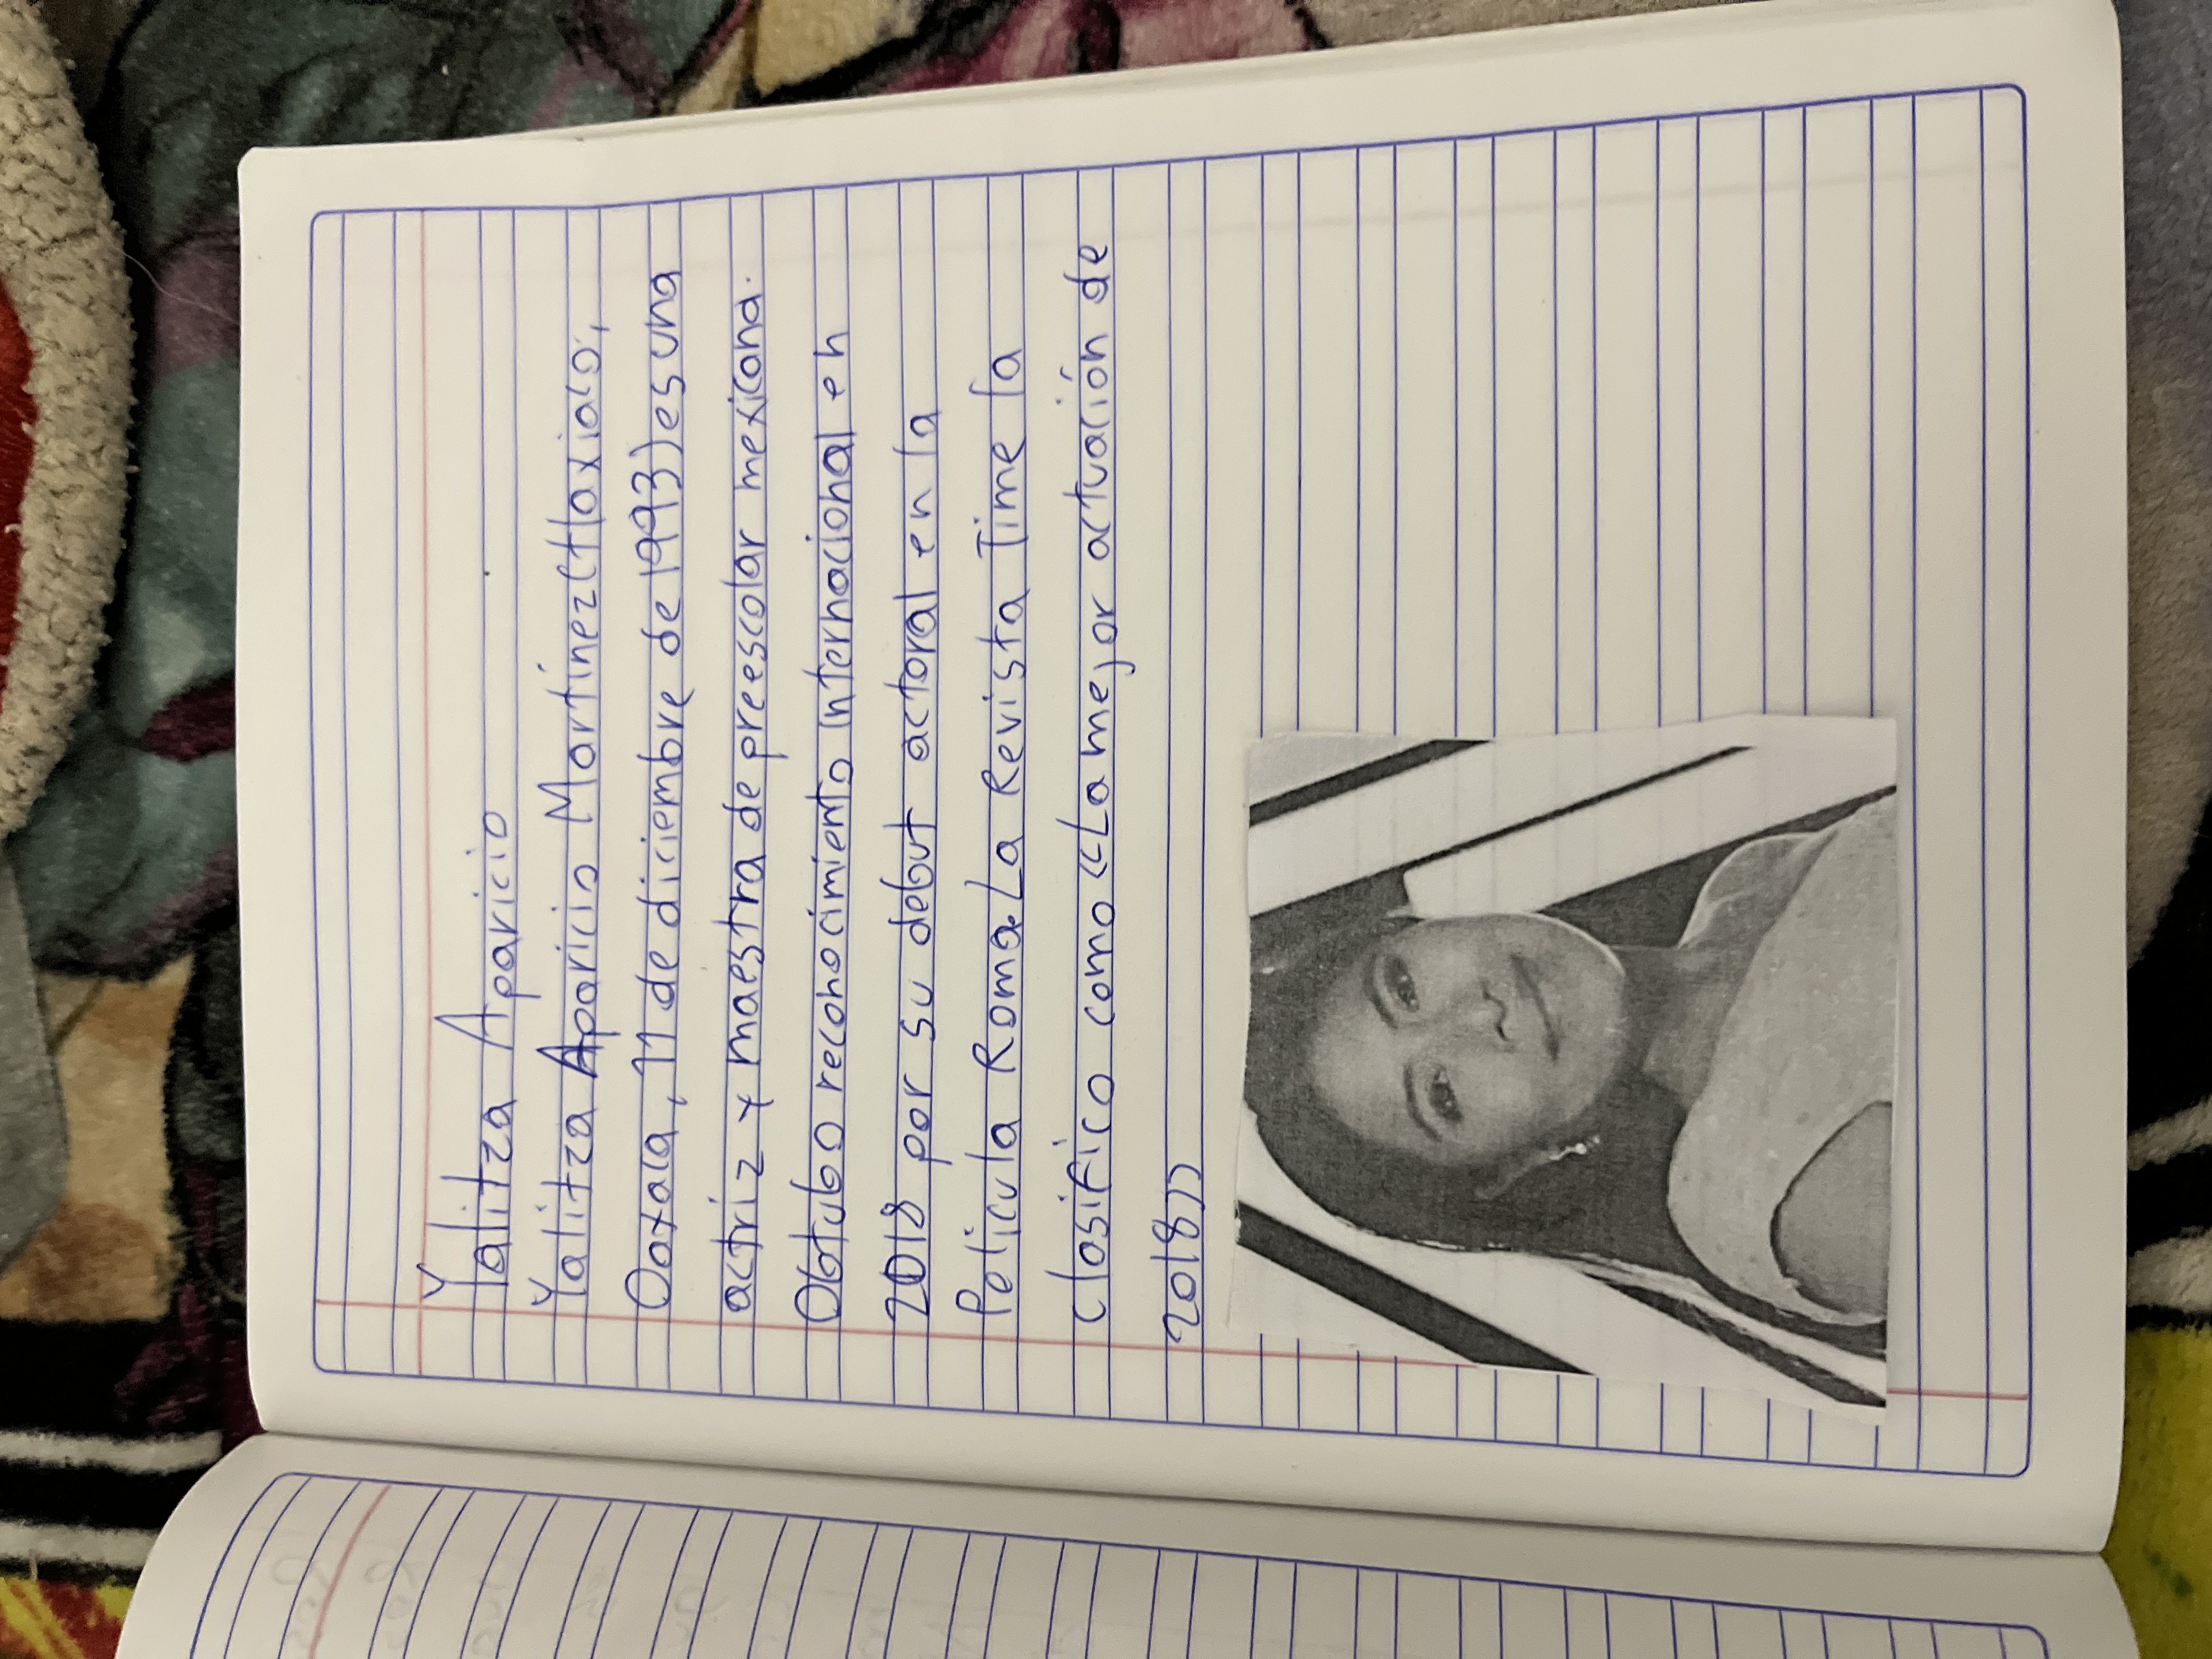 Yalitza Aparicio
Yalitza Aparicio Martínez(tlaxiaco,
Oaxaca, 11 de diciembre de 1993) es una
actriz y maestra de preescolar mexicana.
Obtubo reconocimiento internacional en
2018 por su debut actoral en la
Pelicula Roma. La Revista Time la
clasifico como «La mejor actuación de
2018»